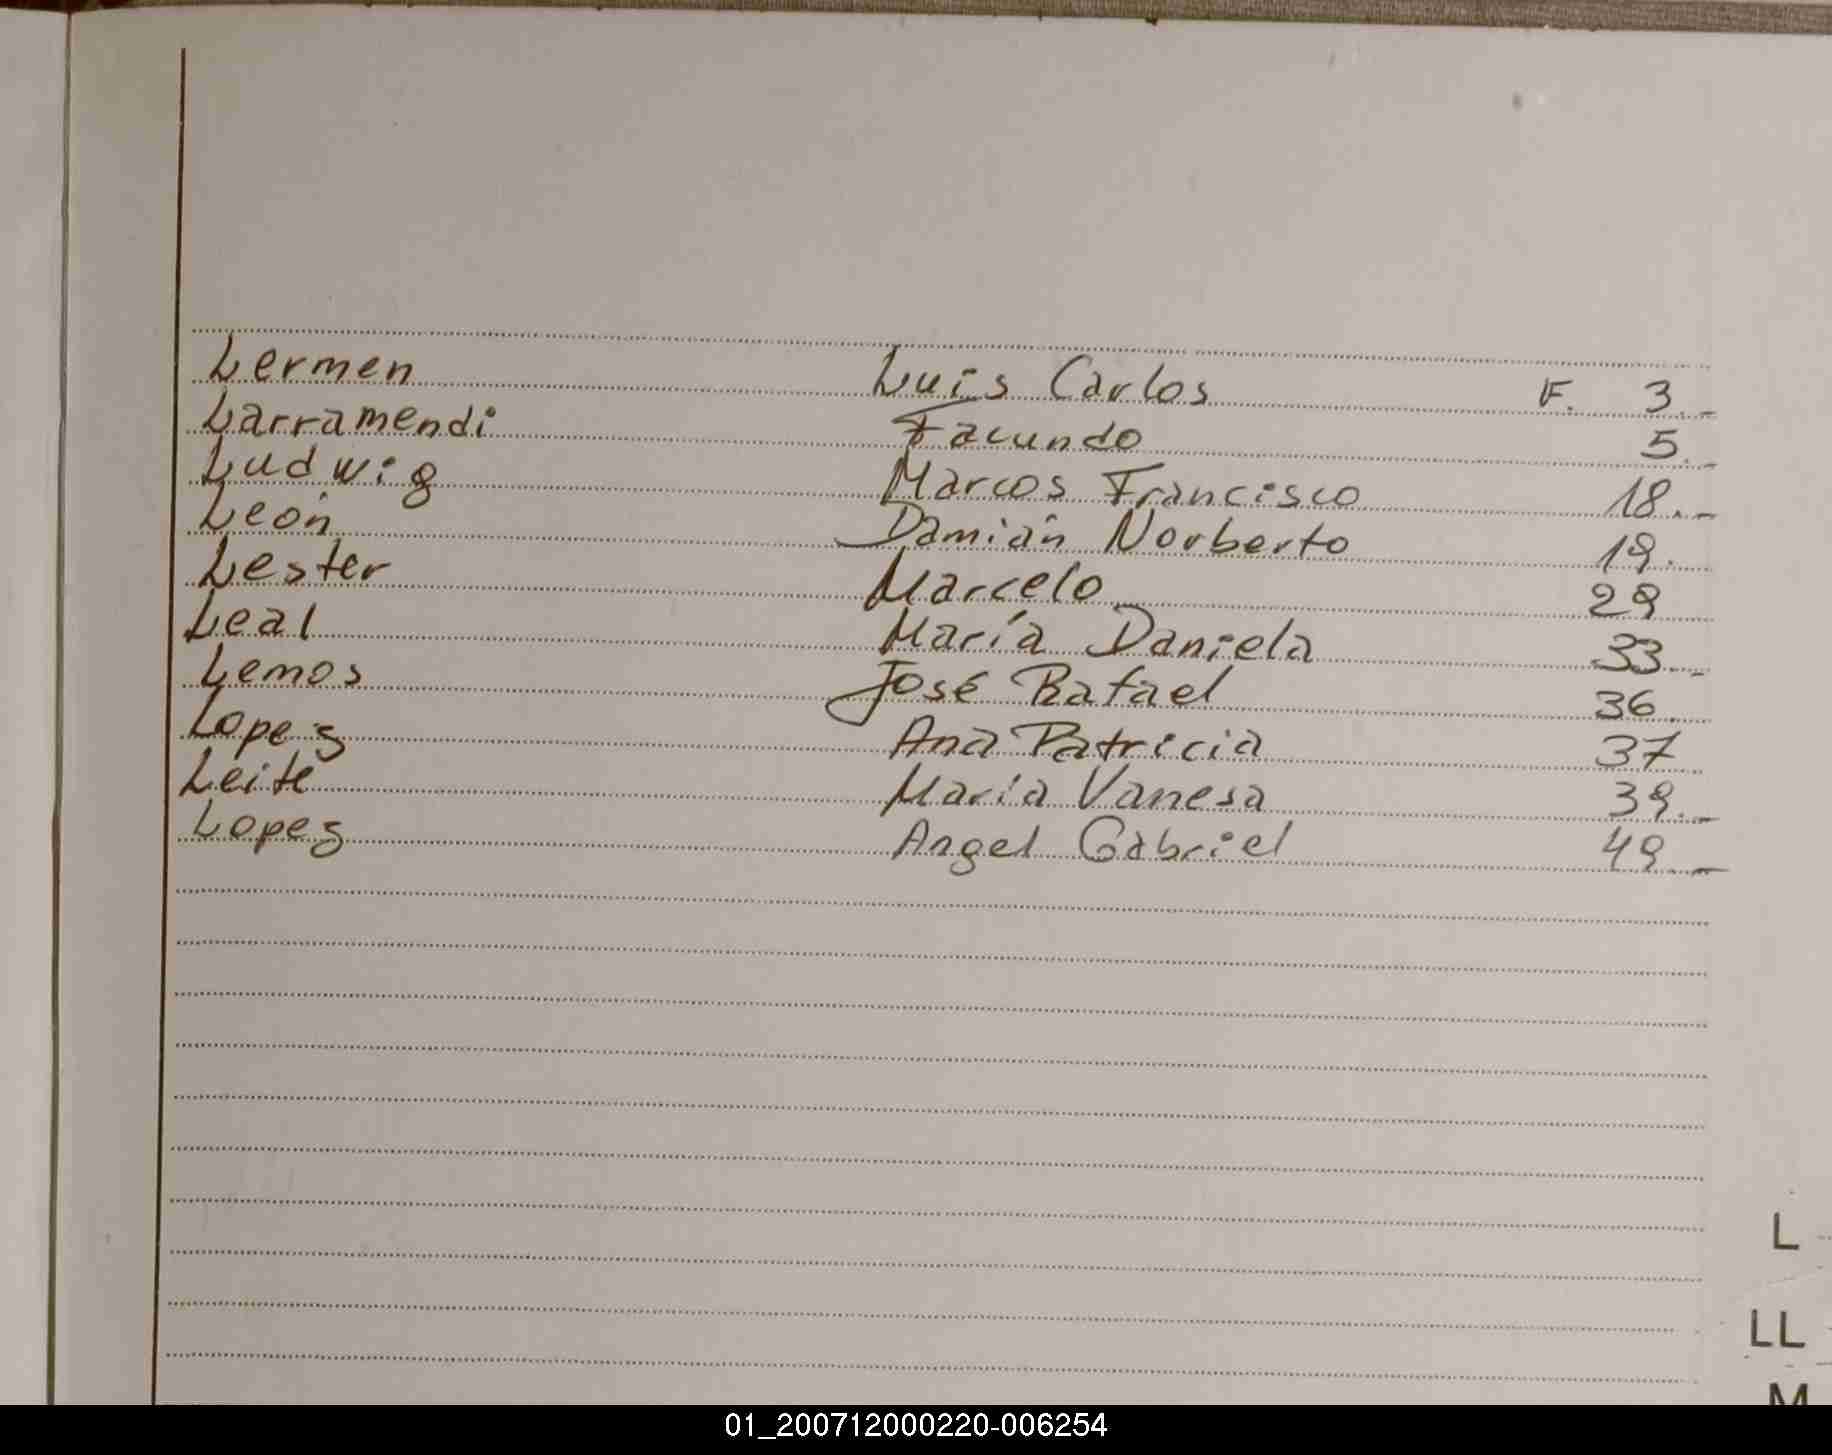 Lermen Luis Carlos F. 3.-
Larramendi Facundo 5.-
Ludwig Marcos Francisco 18.-
León Damián Norberto 19.
Lester Marcelo 29
Leal María Daniela 33.-
Lemos José Rafael 36.
Lopez Ana Patricia 37
Leite María Vanesa 39.-
Lopez Angel Gabriel 49.-
L
LL
M
01_200712000220-006254